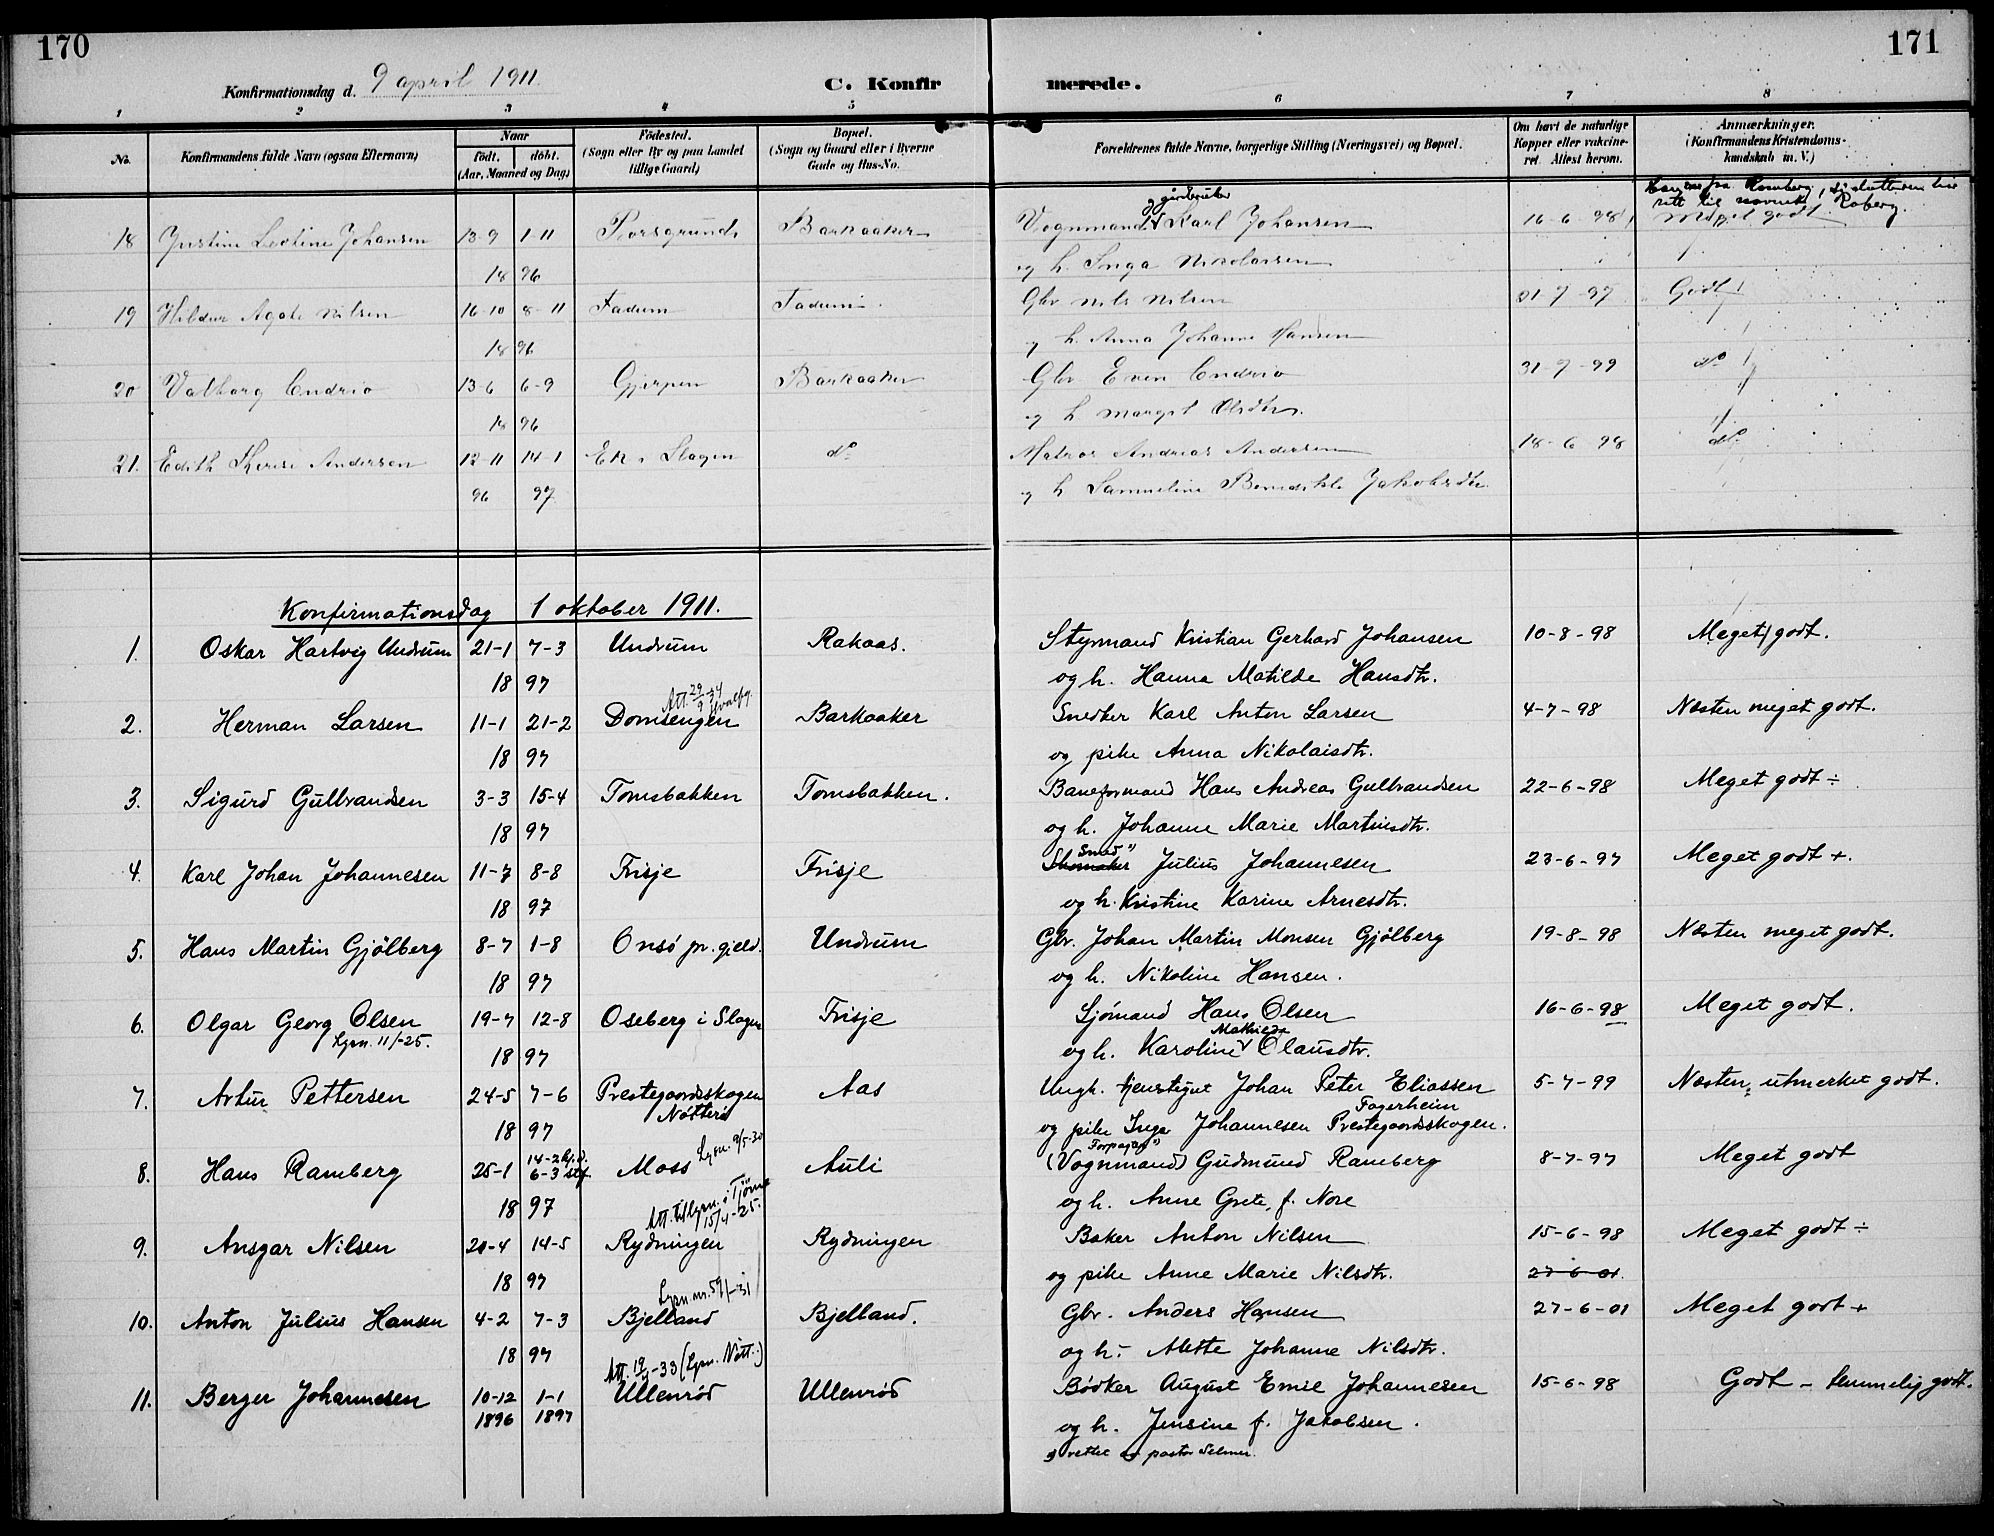 170
171
Konfirmationsdag d. 9 april 1911.
C. Konfirmerede.
1 2 3 4 5 6 7 8
No. Konfirmandens fulde Navn (ogsaa Efternavn) Naar födt. döbt. (Aar, Maaned og Dag) Födested. (Sogn eller By og paa Landet tillige Gaard) Bopæl. (Sogn og Gaard eller i Byerne Gade og Hus-No. Forældrenes fulde Navne, borgerlige Stilling (Næringsvei) og Bopæl. Om havt de naturlige Kopper eller vakcineret. Attest herom. Anmærkninger. (Konfirmandens Kristendomskundskab m. V.)
og gårdbruker
18 Justine Leotine Johansen 13-9 1-11 Porsgrund Barkaaker Vognmand Karl Johansen 16-6-98 Meget godt.
18 96 og h. Inga Nikolaisen
19 Hildur Agate Nilsen 16-10 8-11 Fadum Fadum Gbr Nils Nilsen 31-7-97 Godt
18 96 og h. Anna Johanne Hansen
20 Valborg Endrio 13-6 6-9 Gjerpen Barkaaker Gbr Even Endrio 31-7-99 do
18 96 og h Margit Olsdtr.
21. Edith Therese Andersen 12-11 14-1 Ek i Slagen do Matros Andreas Andersen 18-6-98 do
96 97 og h Samueline Benedikte Jakobsdtr
Konfirmationsdag 1 oktober 1911.
1. Oskar Hartvig Undrum 21-1 7-3 Undrum Rakaas. Styrmand Kristian Gerhard Johansen 10-8-98 Meget godt.
18 97 og h. Hanna Matilde Hansdtr.
Att. 29/9 34
2. Herman Larsen 11-1 21-2 Domsengen Barkaaker Snedker Karl Anton Larsen 4-7-98 Næsten meget godt.
18 97 og pike Anna Nikolaisdtr.
3. Sigurd Gulbrandsen 3-3 15-4 Tomsbakken Tomsbakken. Baneformand Hans Andreas Gulbrandsen 22-6-98 Meget godt ÷
18 97 og h. Johanne Marie Martinsdtr.
Smed "
4. Karl Johan Johannesen 11-7 8-8 Frisje Frisje Skomaker Julius Johannesen 23-6-97 Meget godt +.
18 97 og h. Kristine Karine Arnesdtr.
5. Hans Martin Gjölberg 8-7 1-8 Onsö pr.gjeld. Undrum Gbr. Johan Martin Monsen Gjölberg 19-8-98 Næsten meget godt.
18 97 og h. Nikoline Hansen.
6. Olgar Georg Olsen 19-7 12-8 Oseberg i Slagen Frisje Sjömand Hans Olsen 16-6-98 Meget godt.
Lysn. 11/-25.
18 97 og h. Karoline Mathiea Olausdtr.
7. Artur Pettersen 24-5 7-6 Prestegaardsskogen Nötterö Aas Ungk. tjenstegut Johan Peter Eliassen 5-7-99 Næsten utmerket godt.
Fagerheim
18 97 og pike Inga Johannesen Prestegaardsskogen.
Lysn. 9/5-30
Forpagter "
8. Hans Ramberg 25-1 14-2 hj.d. 6-3 stf. Moss Auli (Vognmand) Gudmund Ramberg 8-7-97 Meget godt
18 97 og h. Anne Grete, f. Nore
Att. til lysn. i Tjöme 15/4-25.
9. Ansgar Nilsen 20-4 14-5 Rydningen Rydningen Baker Anton Nilsen 15-6-98 Meget godt ÷
18 97 og pike Anne Marie Nilsdtr. 27-6-01.
Lysn. nr. 59/-31
10. Anton Julius Hansen 4-2 7-3 Bjelland Bjelland. Gbr. Anders Hansen 27-6-01 Meget godt +
18 97 og h. Alette Johanne Nilsdtr.
(Lysn. Nött.)
11. Berger Johannesen 10-12 1-1 Ullenröd Ullenröd Bödker August Emil Johannesen 15-6-98 Godt - temmelig godt.
1896 1897 og h. Jensine f. Jakobsen.
") rettet av pastor Selmer.